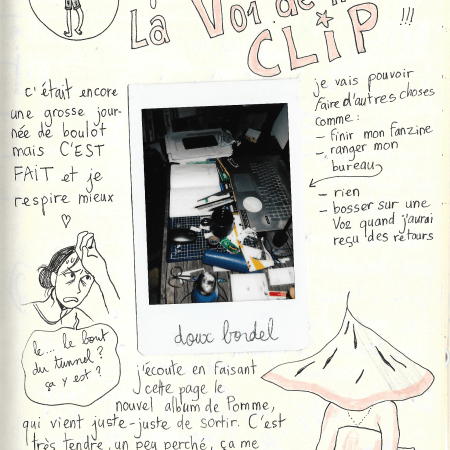 La VO1 de
CLIP !!!
c'était encore
une grosse jour-
née de boulot
mais C'EST
FAIT et je
respire mieux
♡
le... le bout
du tunnel ?
ça y est ?
doux bordel
je vais pouvoir
faire d'autres choses
comme :
- finir mon fanzine
- ranger mon
bureau
- rien
- bosser sur une
VO2 quand j'aurai
reçu des retours
j'écoute en faisant
cette page le
nouvel album de Pomme,
qui vient juste-juste de sortir. C'est
très tendre, un peu perché, ça me